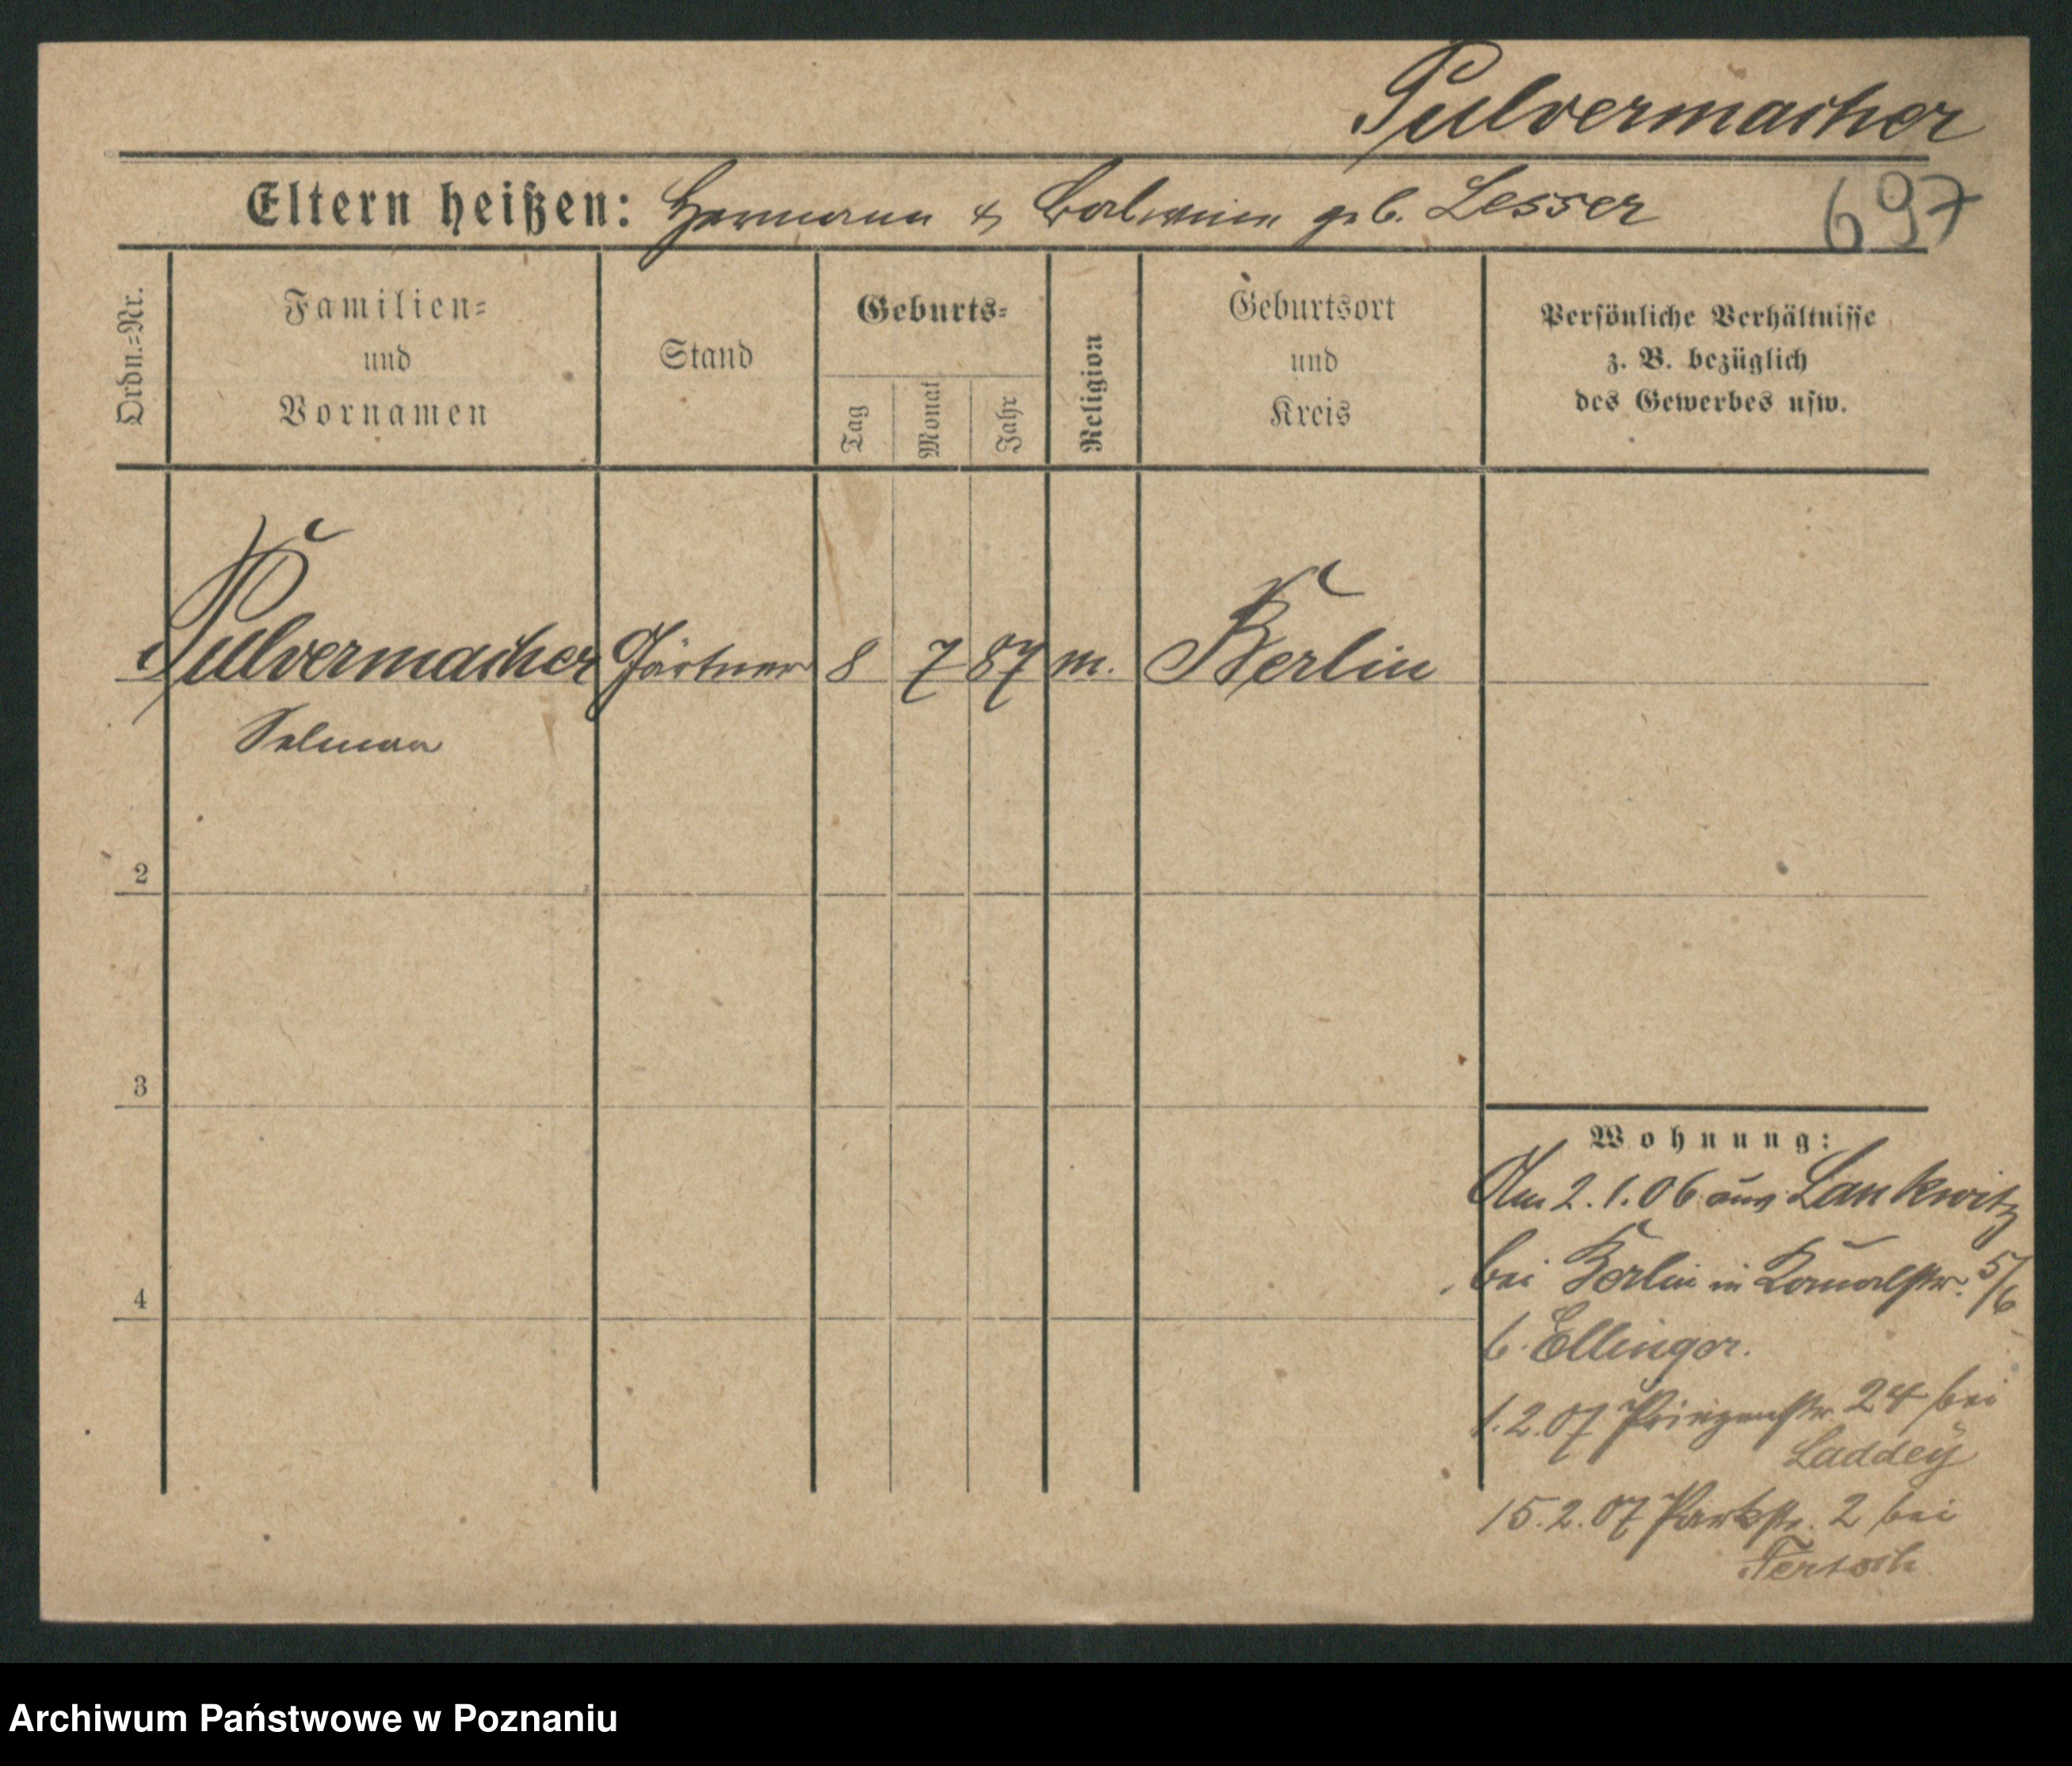 Pulvermacher
Eltern heißen: Hermann & geb. Lesser
697
Ordn.=Nr.
Familien=
und
Vornamen
Stand
Geburts=
Tag
Monat
Jahr
Religion
Geburtsort
und
Kreis
Persönliche Verhältnisse
z. B. bezüglich
des Gewerbes usw.
Pulvermacher Gärtner 8 7 87 m. Berlin
2
3
4
Wohnung:
Am 2.1.06 aus Lankwitz
bei Berlin in Kanalstr. 5/6
b. Ellinger.
1.2.07 Prinzenstr. 24 bei
Laddey
15.2.07 Parkstr. 2 bei
Archiwum Państwowe w Poznaniu